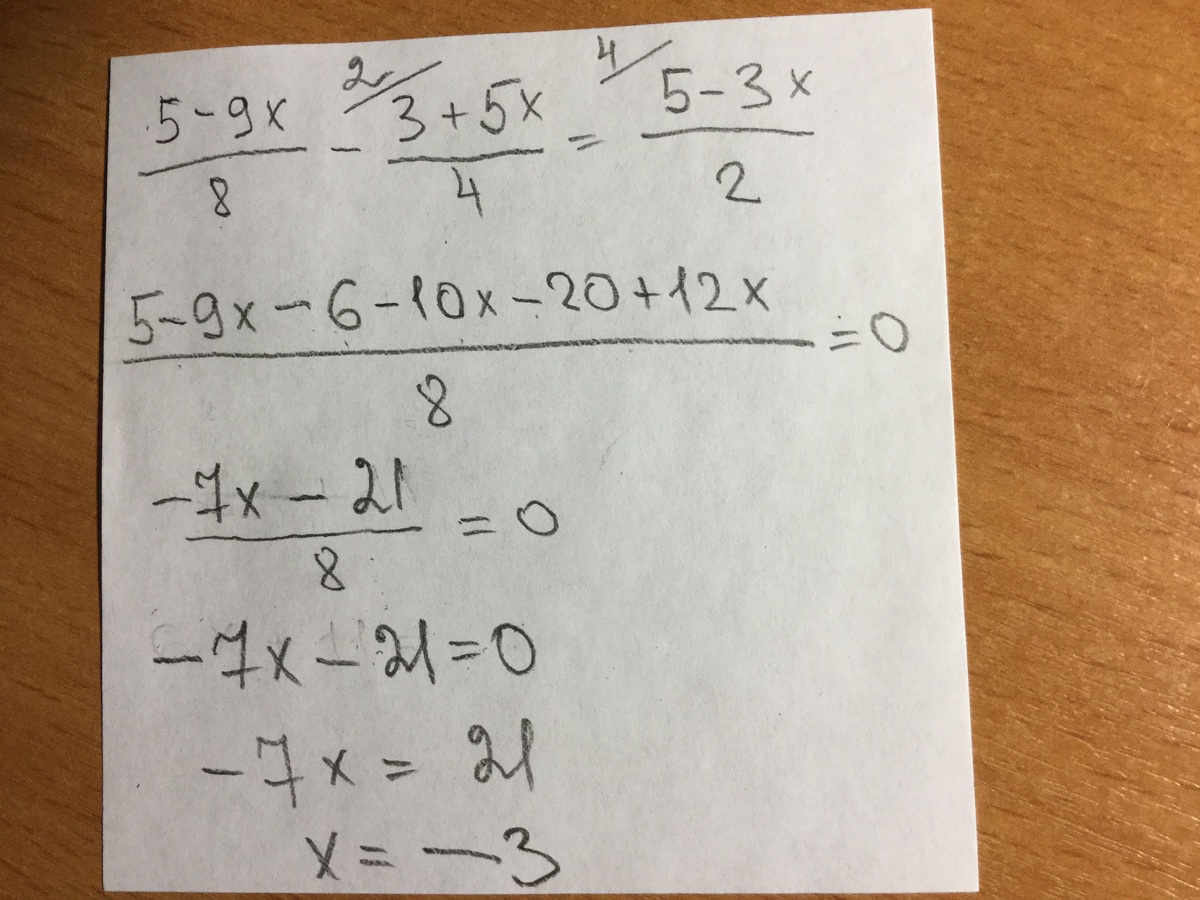 (5-9x)/8 - ²⁄(3+5x)/4 = ⁴⁄(5-3x)/2
(5-9x-6-10x-20+12x)/8 = 0
(-7x-21)/8 = 0
-7x-21=0
-7x = 21
x = -3